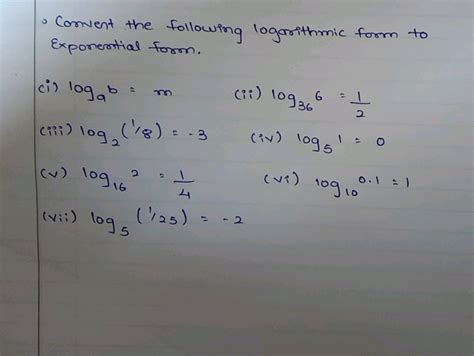 Convent the following logarithmic form to
Exponential form.
(i) log_a b = m (ii) log_36 6 = 1/2
(iii) log_2 (1/8) = -3 (iv) log_5 1 = 0
(v) log_16 2 = 1/4 (vi) log_10 0.1 = 1
(vii) log_5 (1/25) = -2